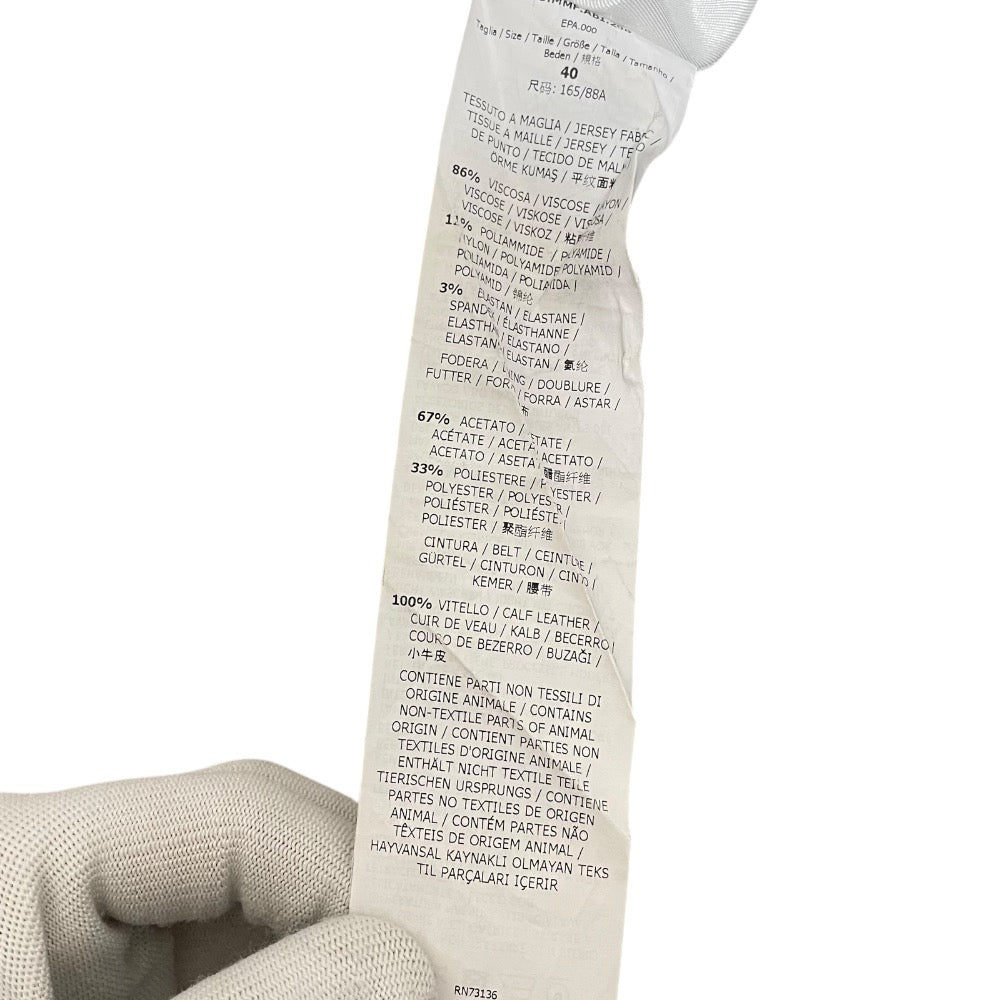 EPA.000
Taglia / Size / Taille / Größe / Talla / Tamanho /
Beden / 規格
40
尺码: 165/88A
TESSUTO A MAGLIA / JERSEY
TISSUE A MAILLE / JERSEY /
DE PUNTO / TECIDO DE
ÖRME KUMAŞ / 平纹面料
86% VISCOSA / VISCOSE /
VISCOSE / VISKOSE /
VISCOSE / VISKOZ /
11% POLIAMMIDE /
POLYAMIDE POLYAMID /
POLIAMIDA /
POLYAMID / 锦纶
3% ELASTAN / ELASTANE /
ÉLASTHANNE /
ELASTANO /
ELASTAN / 氨纶
FODERA / DOUBLURE /
FUTTER / FORRA / ASTAR /
67% ACETATO /
ACÉTATE / ACETATO /
ACETATO /
33% POLIESTERE /
POLYESTER /
POLIÉSTER /
POLIESTER / 聚酯纤维
CINTURA / BELT / CEINTURE /
GÜRTEL / CINTURON /
KEMER / 腰带
100% VITELLO / CALF LEATHER /
CUIR DE VEAU / KALB / BECERRO /
COURO DE BEZERRO / BUZAĞI /
小牛皮
CONTIENE PARTI NON TESSILI DI
ORIGINE ANIMALE / CONTAINS
NON-TEXTILE PARTS OF ANIMAL
ORIGIN / CONTIENT PARTIES NON
TEXTILES D'ORIGINE ANIMALE /
ENTHÄLT NICHT TEXTILE TEILE
TIERISCHEN URSPRUNGS / CONTIENE
PARTES NO TEXTILES DE ORIGEN
ANIMAL / CONTÉM PARTES NÃO
TÊXTEIS DE ORIGEM ANIMAL /
HAYVANSAL KAYNAKLI OLMAYAN TEKS
TIL PARÇALARI İÇERIR
RN73136